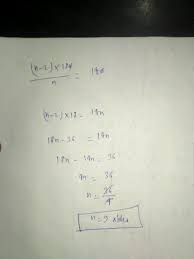 (n-2)×180/n = 140
(n-2)×18 = 14n
18n - 36 = 14n
18n - 14n = 36
4n = 36
n = 36/4
n = 9 sides